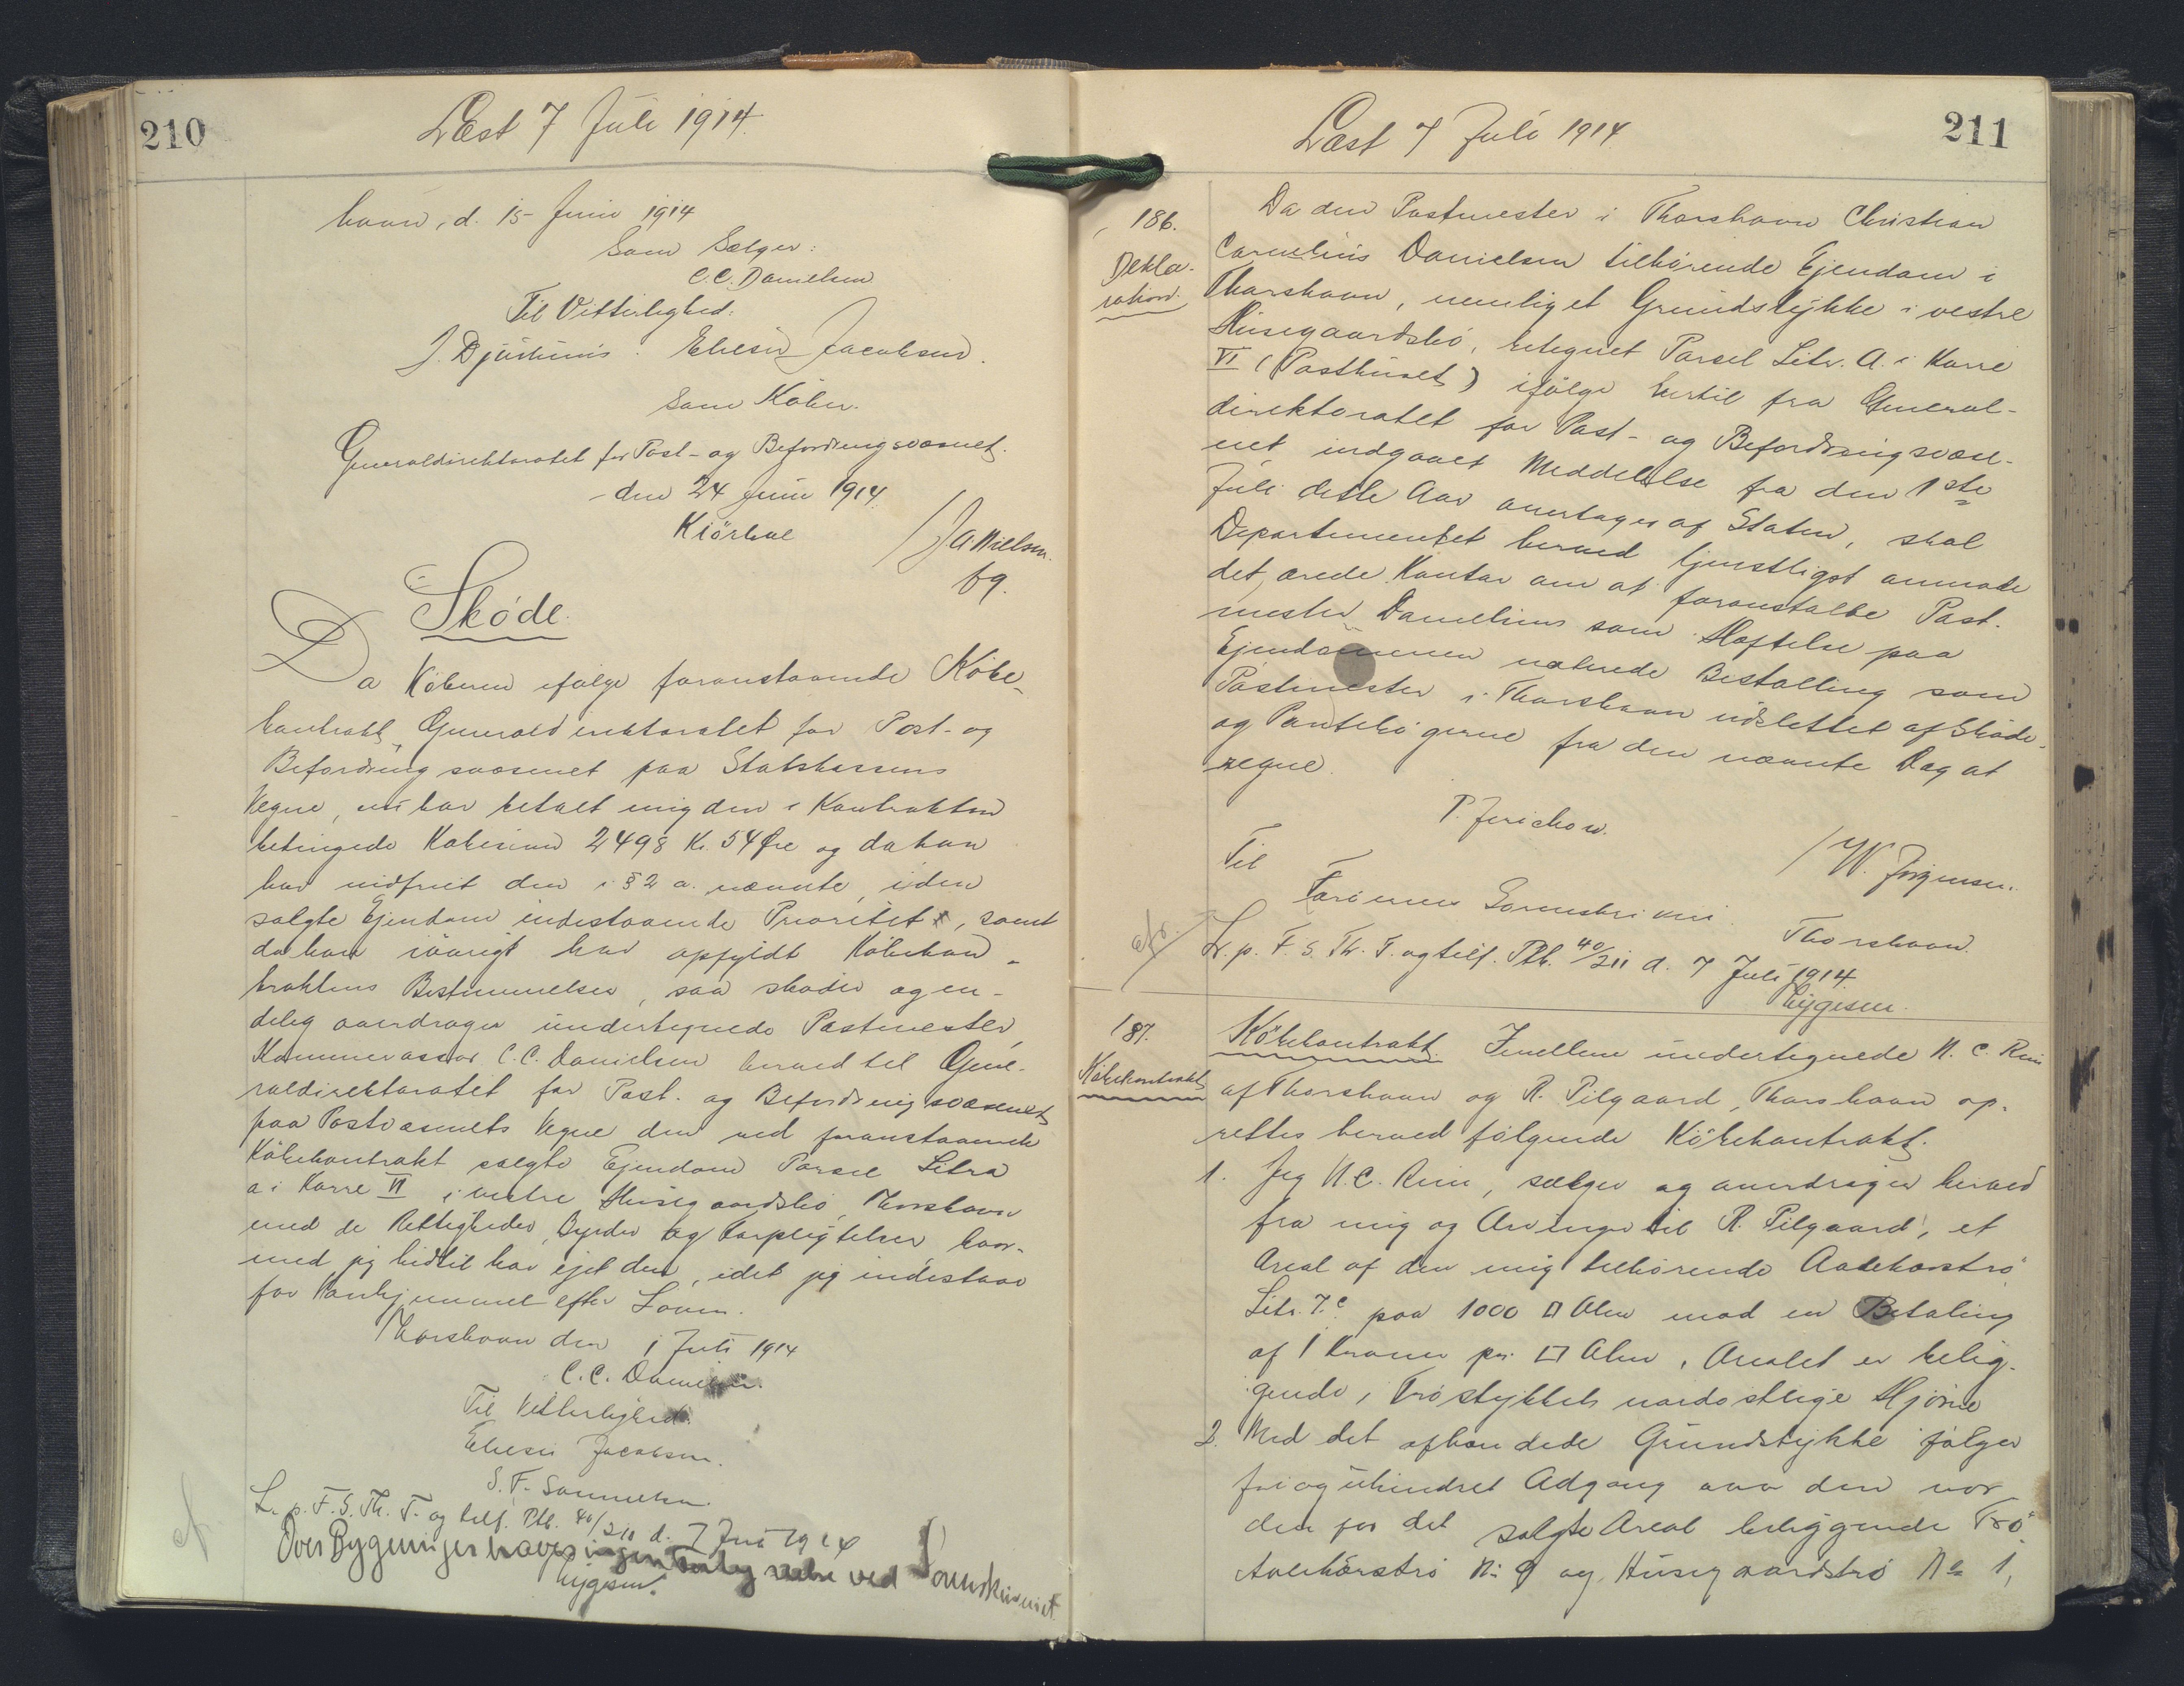 210
Læst 7 Juli 1914.
havn, d. 15 Juni 1914
Som Sælger:
C.C. Danielsen
Til Vitterlighed:
J. Djurhuus. Elieser Jacobsen.
Som Køber.
Generaldirektoratet for Post- og Befordringsvæsnet.
den 24 Juni 1914.
Kiörboe
/J.A. Nielsen.
fg.
Sköde.
Da Köberen ifølge foranstaaende Købe-
kontrakt, Generaldirektoratet for Post- og
Befordringsvæsenet paa Statskassens
Vegne, nu har betalt mig den i Kontrakten
betingede Købesum 2498 Kr. 54 Øre og da han
har indfriet den i § 2 a. nævnte, i den
solgte Ejendom indestaaende Prioritet, samt
da han iøvrigt har opfyldt Købekon-
traktens Bestemmelser, saa skøder og en-
delig overdrager undertegnede Postmester,
Kammerassor C.C. Danielsen herved til Gene-
raldirektoratet for Post- og Befordringsvæsenet
paa Postvæsnets Vegne den ved foranstaaende
Købekontrakt solgte Ejendom Parsel Litra
a i Karre VI i vestre Husegaardsbø, Thorshavn
med de Rettigheder, Byrder og Forpligtelser, hvor-
med jeg hidtil har ejet den, idet jeg indestaar
for Vanhjemmel efter Loven.
Thorshavn den 1 Juli 1914
C.C. Danielsen.
Til Vitterlighed:
Elieser Jacobsen.
S.F. Samuelsen.
L. p. F. S. Th. T. og tilf. Ptb. 40/211 d. 7 Juli 1914
Over Bygninger haves ingen ved Sorenskriveriet
211
Læst 7 Juli 1914
186.
Dekla-
ration.
Da den Postmester i Thorshavn Christian
Cornelius Danielsen tilhørende Ejendom i
Thorshavn, nemlig et Grundstykke i vestre
Husegaardsbö, betegnet Parsel Litr. A. i Karre
VI (Posthuset) ifölge hertil fra General-
direktoratet for Post- og Befordringsvæse-
net indgaaet Meddelelse fra den 1ste
Juli dette Aar overtages af Staten, skal
Departementet herved tjenstligst anmode
det ærede Kontor om at foranstalte Post-
mester Danielsens som Hæftelse paa
Ejendommen noterede Bestalling som
Postmester i Thorshavn udslettet af Skøde-
og Pantebøgerne fra den nævnte Dag at
regne.
P. Jerichow.
/W. Jörgensen.
Til
Færøernes Sorenskriveri
Thorshavn.
L. p. F. S. Th. T. og tilf. Ptb. 40/211 d. 7 Juli 1914
187.
Købekontrakt
Købekontrakt. Imellem undertegnede N. C. Rein
af Thorshavn og R. Pilgaard, Thorshavn op-
rettes herved følgende Købekontrakt.
1. Jeg N.C. Rein, sælger og overdrager herved
fra mig og Arvinger til R. Pilgaard, et
Areal af den mig tilhørende Aalekærstrø
Litr. 7c paa 1000 □ Alen mod en Betaling
af 1 Krone pr. □ Alen. Arealet er belig-
gende i Trøstykkets nordøstlige Hjørne
2. Med det afhændede Grundstykke følger
fri og uhindret Adgang over den nor
den for det solgte Areal beliggende Trø
Aalekærstrø No 9 og Husegaardstrø No 1,